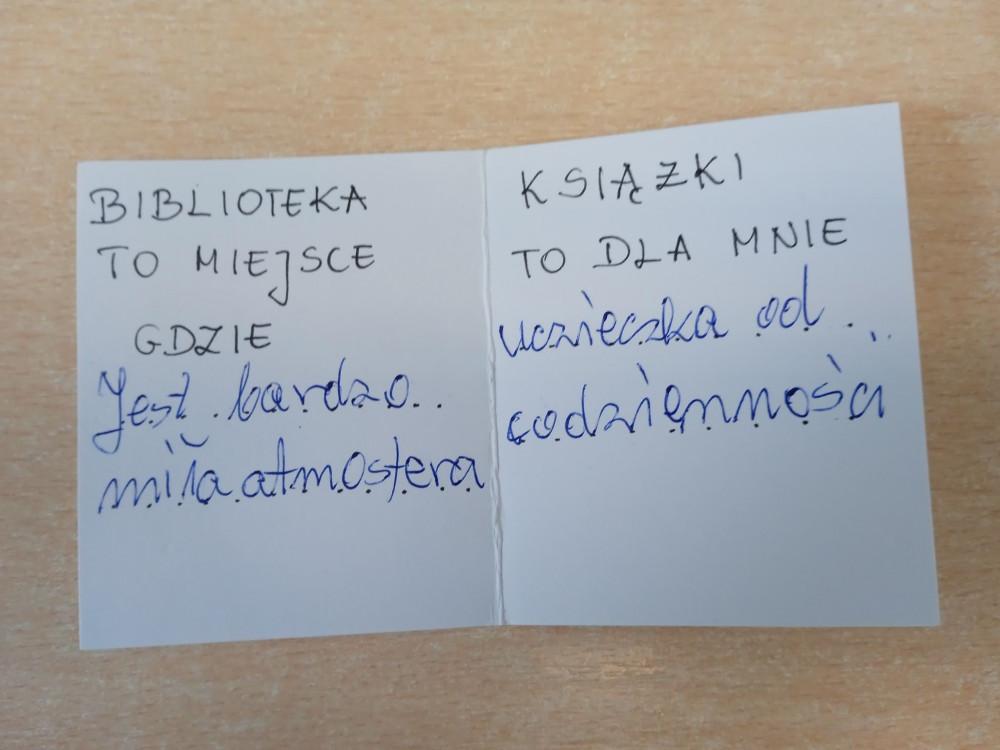 BIBLIOTEKA
TO MIEJSCE
GDZIE
Jest bardzo
miła atmosfera
KSIĄŻKI
TO DLA MNIE
uczieczka od
codzienności